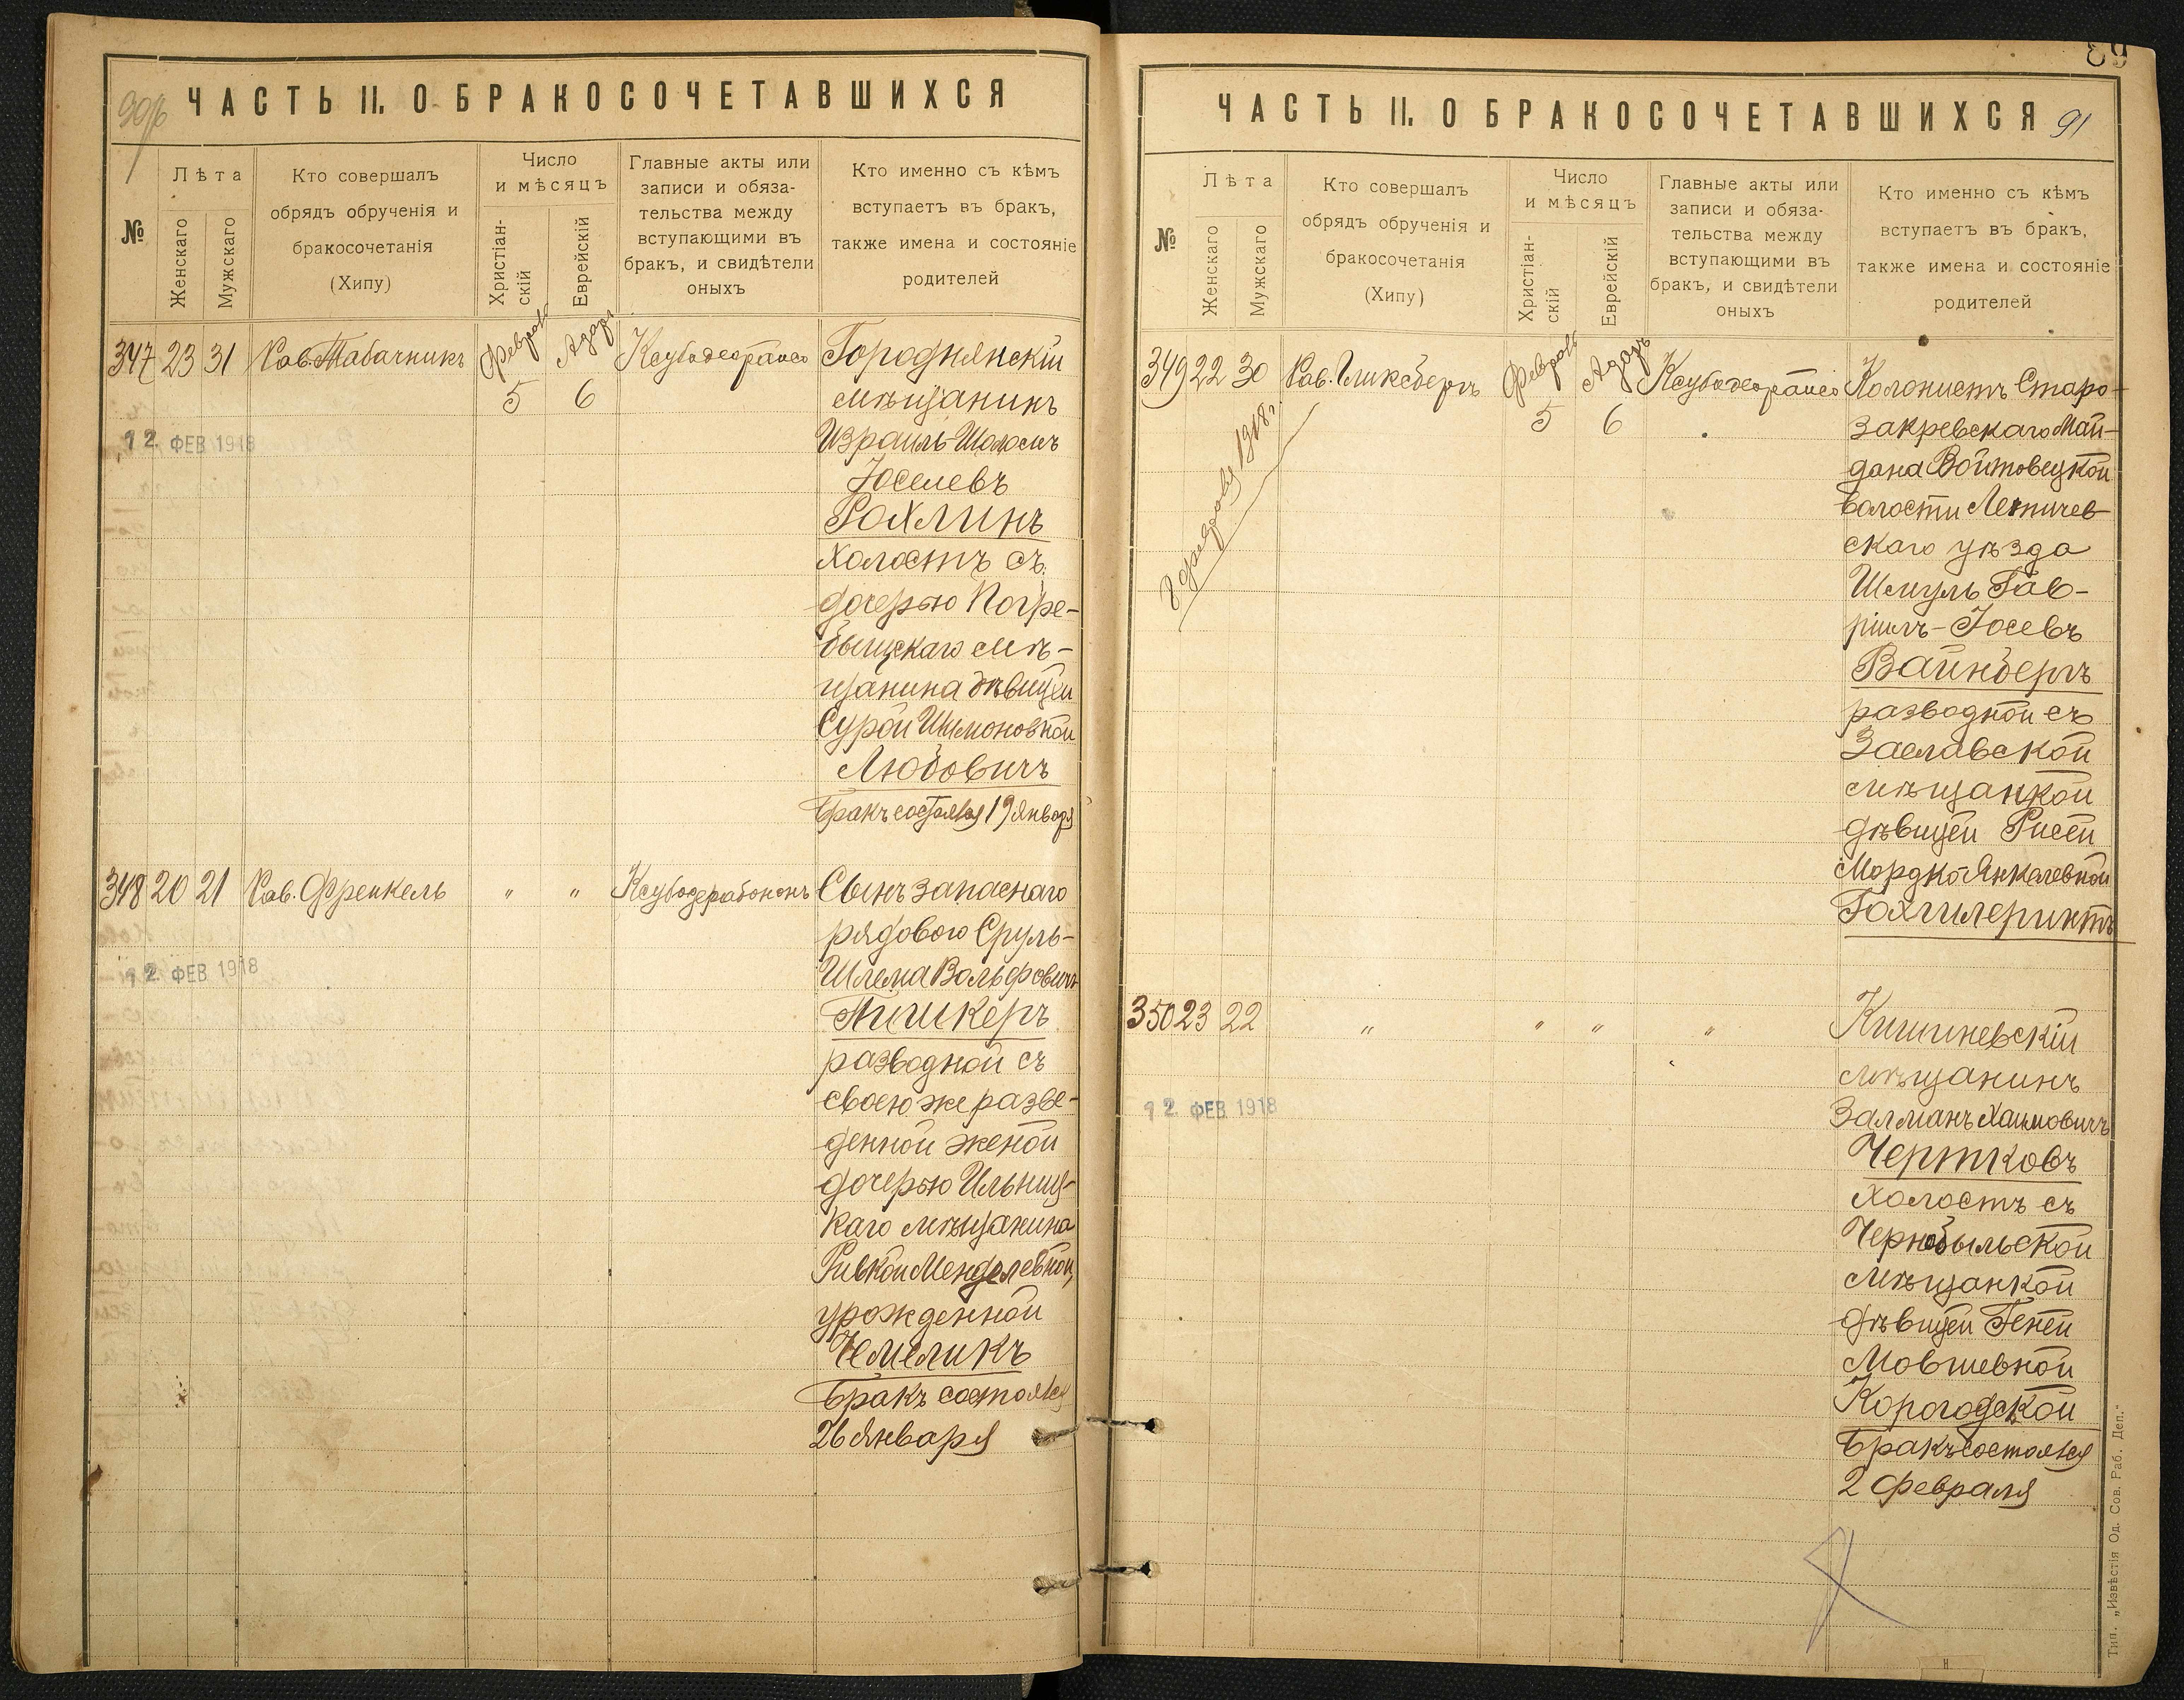 90 об
ЧАСТЬ II. О БРАКОСОЧЕТАВШИХСЯ
№
Лѣта
Женскаго
Мужскаго
Кто совершалъ
обрядъ обрученія и
бракосочетанія
(Хипу)
Число
и мѣсяцъ
Христіан-
скій
Еврейскій
Главные акты или
записи и обяза-
тельства между
вступающими въ
бракъ, и свидѣтели
оныхъ
Кто именно съ кѣмъ
вступаетъ въ бракъ,
также имена и состояніе
родителей
347 23 31 Рав. Табачникъ Февраль 5 Адаръ 6
Городнянскій
мѣщанинъ
Израиль-Шоломъ
Іоселевъ
Рохлинъ
холостъ съ
дочерью Погре-
быщскаго мѣ-
щанина дѣвицей
Сурой Шимоновной
Любовичъ
Бракъ состоялся 19 января
12 ФЕВ 1918
348 20 21 Рав. Френкель " " Ксубодерабононъ
Сынъ запаснаго
рядового Сруль-
Шлема Вольфовичъ
Тишкеръ
разводной съ
своею же разве-
денной женой
дочерью Ильниц-
каго мѣщанина
Ривкой Менделевной,
урожденной
Чемеликъ
Бракъ состоялся
26 января
12 ФЕВ 1918
91
ЧАСТЬ II. О БРАКОСОЧЕТАВШИХСЯ
№
Лѣта
Женскаго
Мужскаго
Кто совершалъ
обрядъ обрученія и
бракосочетанія
(Хипу)
Число
и мѣсяцъ
Христіан-
скій
Еврейскій
Главные акты или
записи и обяза-
тельства между
вступающими въ
бракъ, и свидѣтели
оныхъ
Кто именно съ кѣмъ
вступаетъ въ бракъ,
также имена и состояніе
родителей
349 22 30 Рав. Гликсбергъ Февраль 5 Адаръ 6
Колонистъ Старо-
закревскаго Май-
дана Войтовецкой
волости Летичев-
скаго уѣзда
Шмуль Гав-
ріилъ-Іосевъ
Вайнбергъ
разводной съ
Заславской
мѣщанкой
дѣвицей Рисей
Мордко-Янкелевной
Гохгилеринтъ
1918 г.
350 23 22 " " " "
Кишиневскій
мѣщанинъ
Залманъ Хаимовичъ
Чертковъ
холостъ съ
Чернобыльской
мѣщанкой
дѣвицей Геней
Мовшевной
Корогодской
Бракъ состоялся
2 февраля
12 ФЕВ 1918
Тип. „Извѣстія Од. Сов. Раб. Деп."